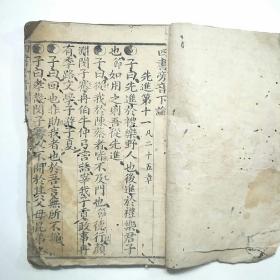 四書旁音下論
先進第十一 凡二十五章
子曰先進於禮樂野人也後進於禮樂君子
也節如用之則吾從先進
子曰從我於陳蔡者皆不及門也節德行顏
淵閔子騫冉伯牛仲弓言語宰我子貢政事冉
有季路文學子游子夏
子曰回也非助我者也於吾言無所不說
子曰孝哉閔子騫人不間於其父母昆弟